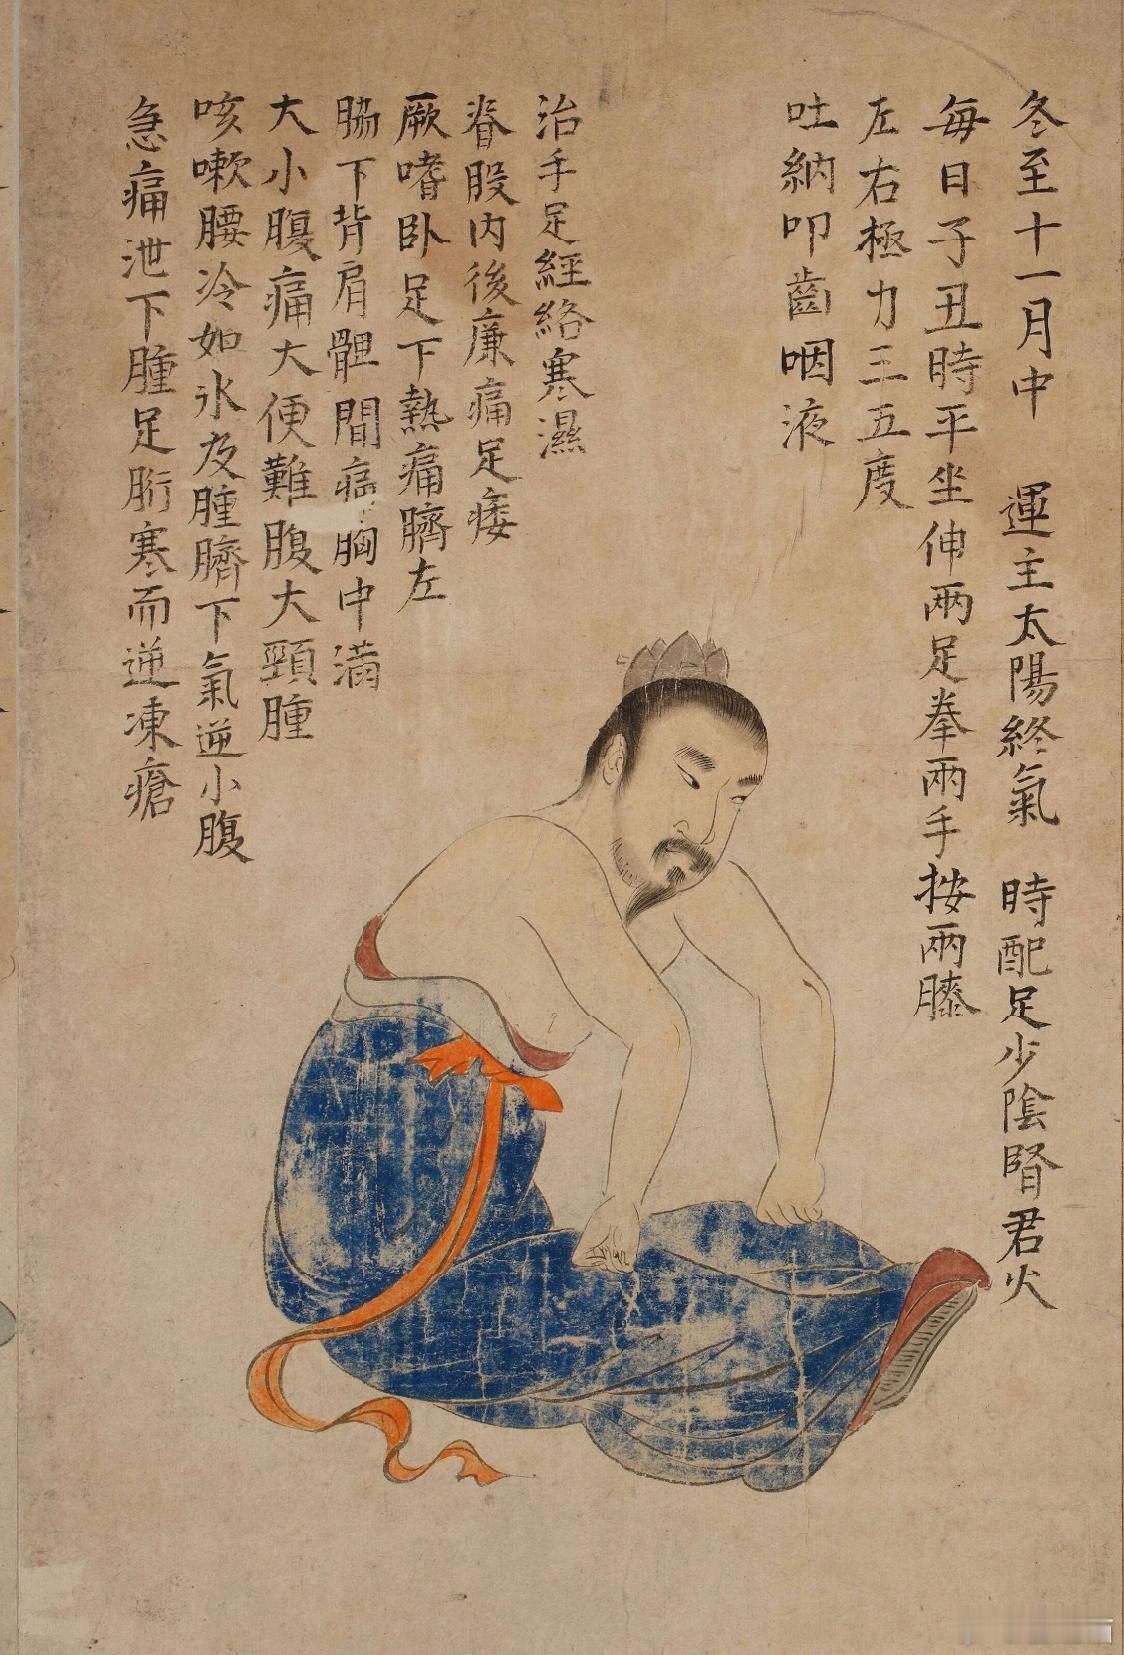 冬至十一月中　運主太陽終氣　時配足少陰腎君火
每日子丑時平坐伸兩足拳兩手按兩膝
左右極力三五度
吐納叩齒咽液
治手足經絡寒濕
脊股內後廉痛足痿
厥嗜卧足下熱痛臍左
脇下背肩髀間痛胸中滿
大小腹痛大便難腹大頸腫
咳嗽腰冷如氷及腫臍下氣逆小腹
急痛泄下腫足胻寒而逆凍瘡